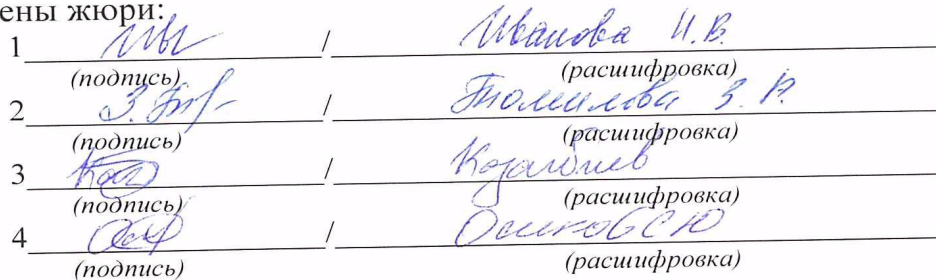 ены жюри:
1 / Иванова И.В.
(подпись) (расшифровка)
2 / Томилова З. В.
(подпись) (расшифровка)
3 /
(подпись) (расшифровка)
4 / Осинов С Ю
(подпись) (расшифровка)